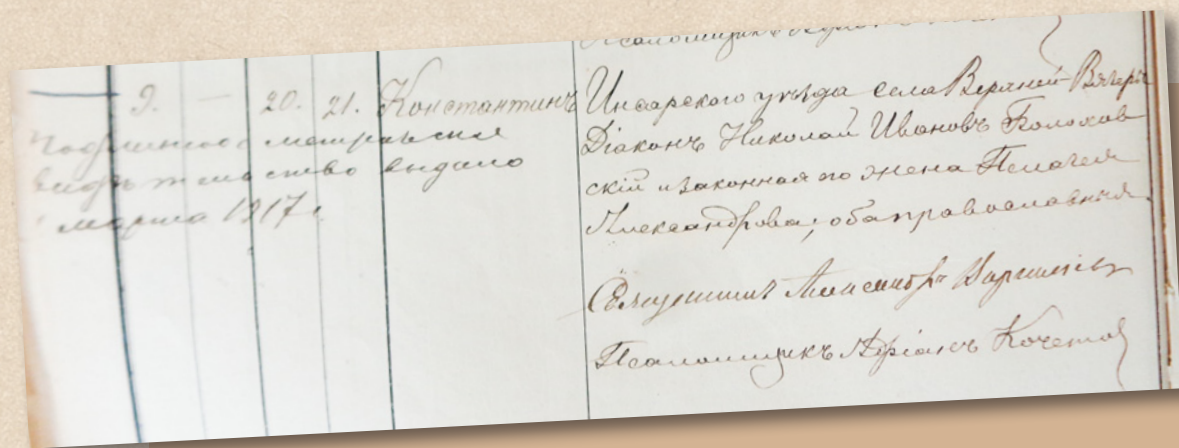 9. — 20. 21. Константинъ
метрическое
свидѣтельство выдано
марта 1917 г.
Инсарскаго уѣзда села Верхней
Діаконъ Николай Ивановъ Болохов
скій и законная его жена Пелагея
Александрова, оба православные.
Священникъ Александръ
Псаломщикъ Адріанъ Кочетов